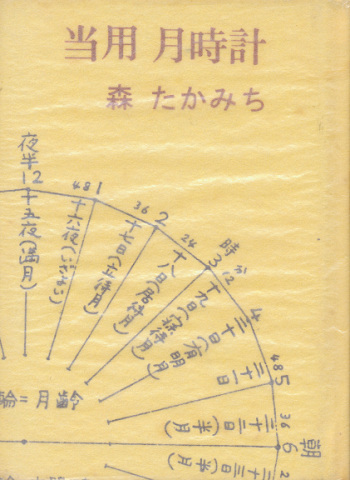 当用 月時計
森 たかみち
夜半
12
十五夜(満月)
48
1
十六夜(いざよい)
36
2
十七日(立待月)
24
3
時
分
12
十八日(居待月)
4
十九日(寝待月)
二十日(有明月)
48
5
二十一日
36
6
朝
二十二日(半月)
二十三日(半月)
2
輪=月齢